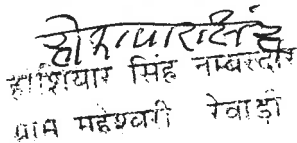 होशियारसिंह
होशियार सिंह नम्बरदार
ग्राम महेश्वरी रेवाड़ी